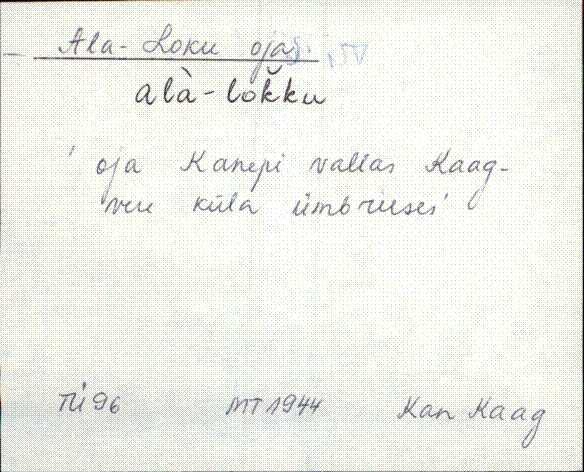 Ala-Loku oja
alà-lok̆ku
' oja Kanepi vallas Kaag-
vere küla ümbruses'
TÜ 96 MT 1944 Kan Kaag